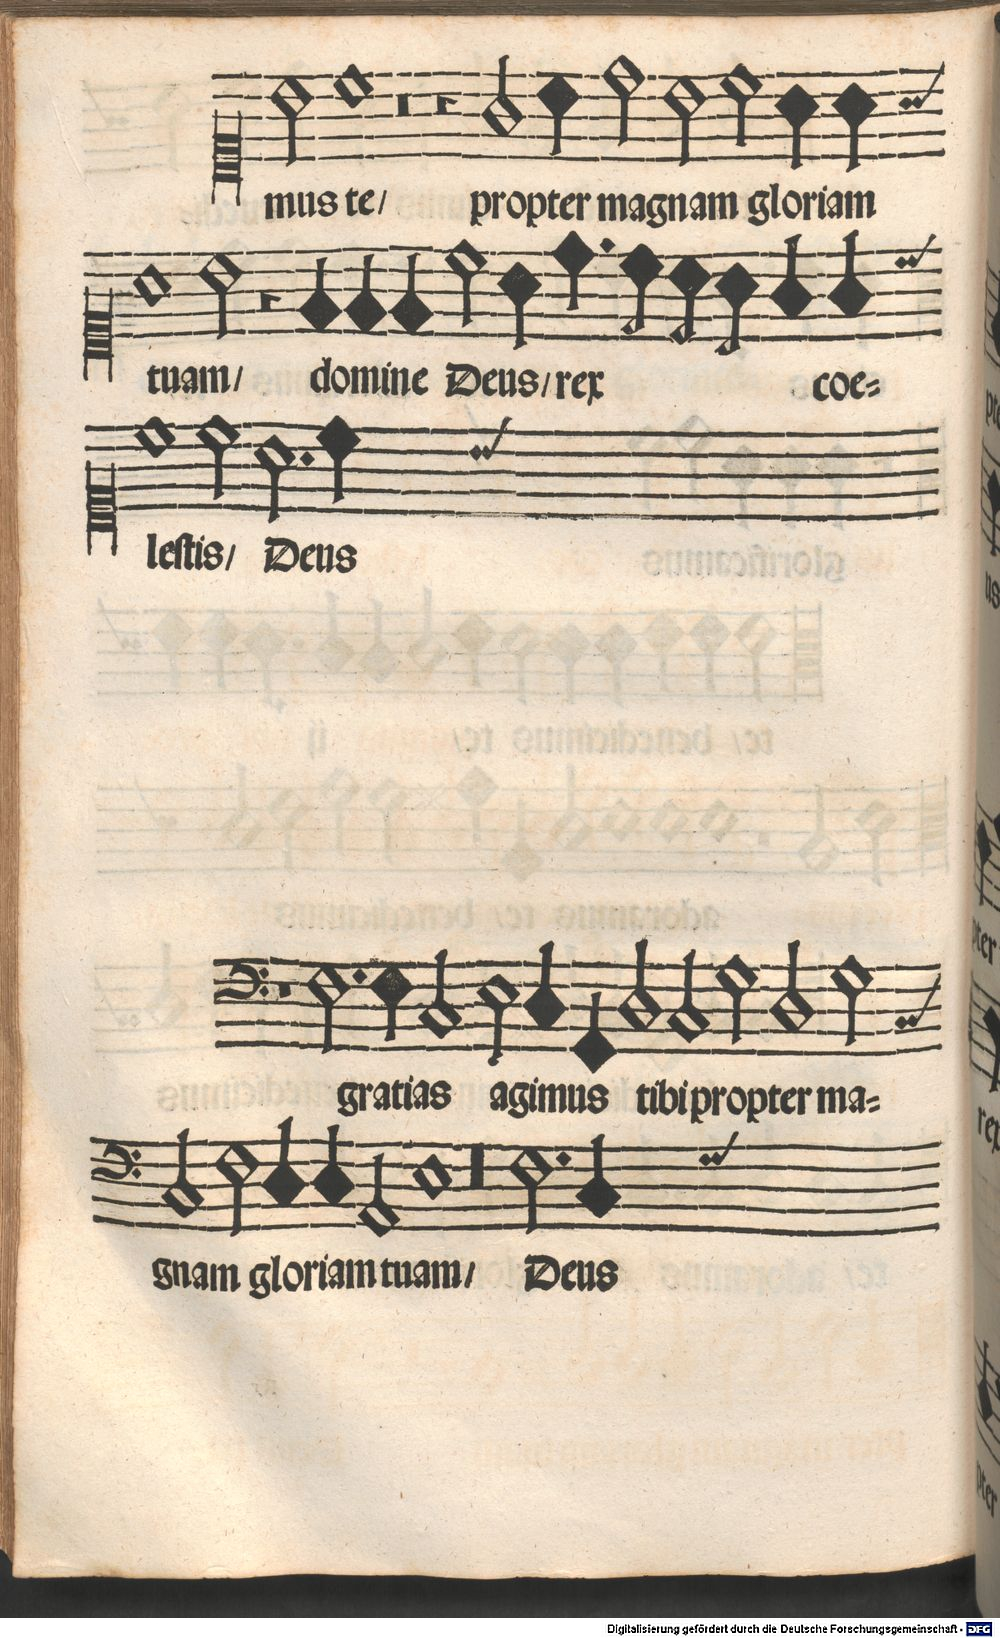 mus te/ propter magnam gloriam
tuam/ domine Deus/ rex coe=
lestis/ Deus
gratias agimus tibi propter ma=
gnam gloriam tuam/ Deus
Digitalisierung gefördert durch die Deutsche Forschungsgemeinschaft - DFG